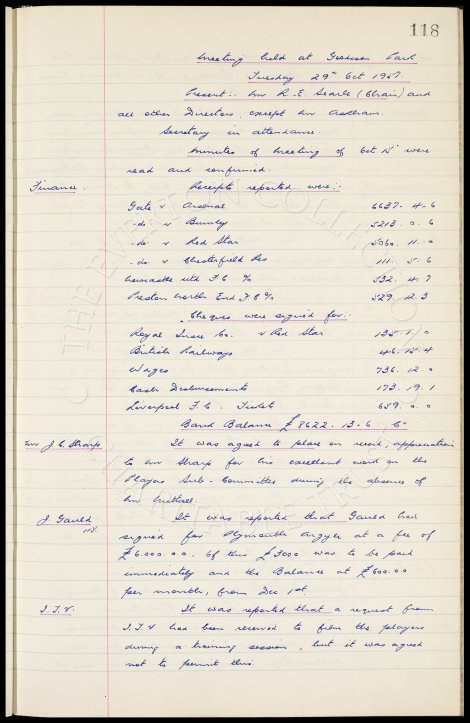 118
Meeting held at Goodison Park
Tuesday 29th Oct 1957.
Present:- Mr R. E. Searle (Chair) and
all other Directors, except Mr Askham.
Secretary in attendance.
Minutes of Meeting of Oct 15th were
read and confirmed.
Finance. Receipts reported were:-
Gate v Arsenal 6637. 4. 6
-do- v Burnley 5213. 0. 6
-do- v Red Star 5060. 11. 0
-do- v Chesterfield Res 111. 5. 6
Newcastle Utd F.C. % 532. 4. 7
Preston North End F.C % 529. 12. 3
Cheques were signed for:-
Royal Insce Co. v Red Star 135. 1. 0
British Railways 46. 15. 4
Wages 736. 12. 0
Cash Disbursements 173. 19. 1
Liverpool F.C. Tickets 659. 0. 0
Bank Balance £8622. 13. 6
Mr J. C. Sharp It was agreed to place on record, appreciation
to Mr Sharp for his excellent work on the
Players Sub-Committee during the absence of
Mr
J. Gauld It was reported that Gauld had
signed for Plymouth Argyle at a fee of
£6.000.00. Of this £3000 was to be paid
immediately and the Balance at £600.00
per month, from Dec 1st.
I.T.V. It was reported that a request from
I.T.V had been received to film the players
during a training session, but it was agreed
not to permit this.
THE EVERTON COLLECTION